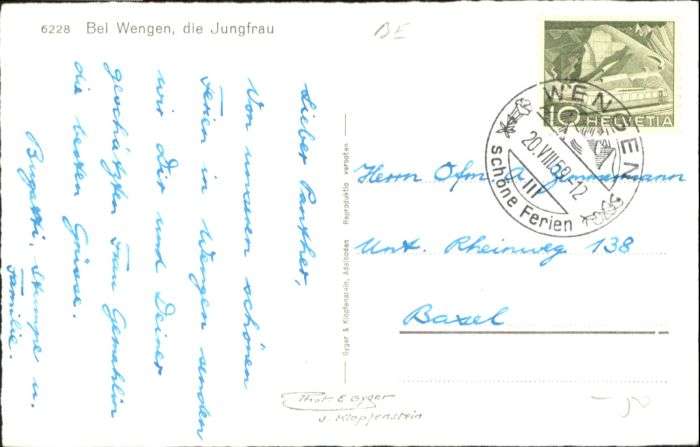 6228 Bel Wengen, die Jungfrau
BE
Lieber Panther,
Von unseren schönen
Ferien in Wengen senden
wir Dir und Deiner
geschätzten Frau Gemahlin
die besten Grüsse.
Bugatti, Stumpe u.
Familie.
Gyger & Klopfenstein, Adelboden Reproduktion verboten
10 HELVETIA
WENGEN
20.VIII.58.-12
III
schöne Ferien
Herrn Ofm A. Zimmermann
Unt. Rheinweg 138
Basel
Phot. E Gyger
u. Klopfenstein